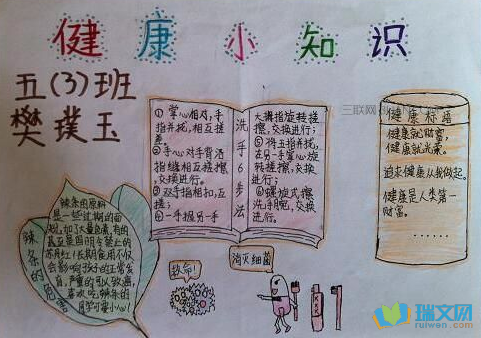 健康小知识
五(3)班
樊璞玉
三联网
洗手6步法
①掌心相对,手
指并拢,相互搓
揉。
②手心对手背沿
指缝相互搓揉,
交换进行。
③双手指相扣,互
搓;
④一手握另一手
大拇指旋转搓
擦,交换进行;
⑤将五指并拢,
在另一手掌心旋
转搓擦,交换
进行;
⑥螺旋式擦
洗手腕,交换
进行。
健康标语
健康就财富,
健康就光荣。
追求健康从我做起。
健康是人类第一
财富。
……
辣条的危害
辣条的原料
是一些过期的面
粉,加了大量色素,有的
甚至是国明令禁止的
苏丹红!长期食用不仅
会影响孩子的正常发
育,严重的引以致癌,
喜欢吃辣条的
同学可要小心!
救命!
消灭细菌
瑞文网
ruiwen.com